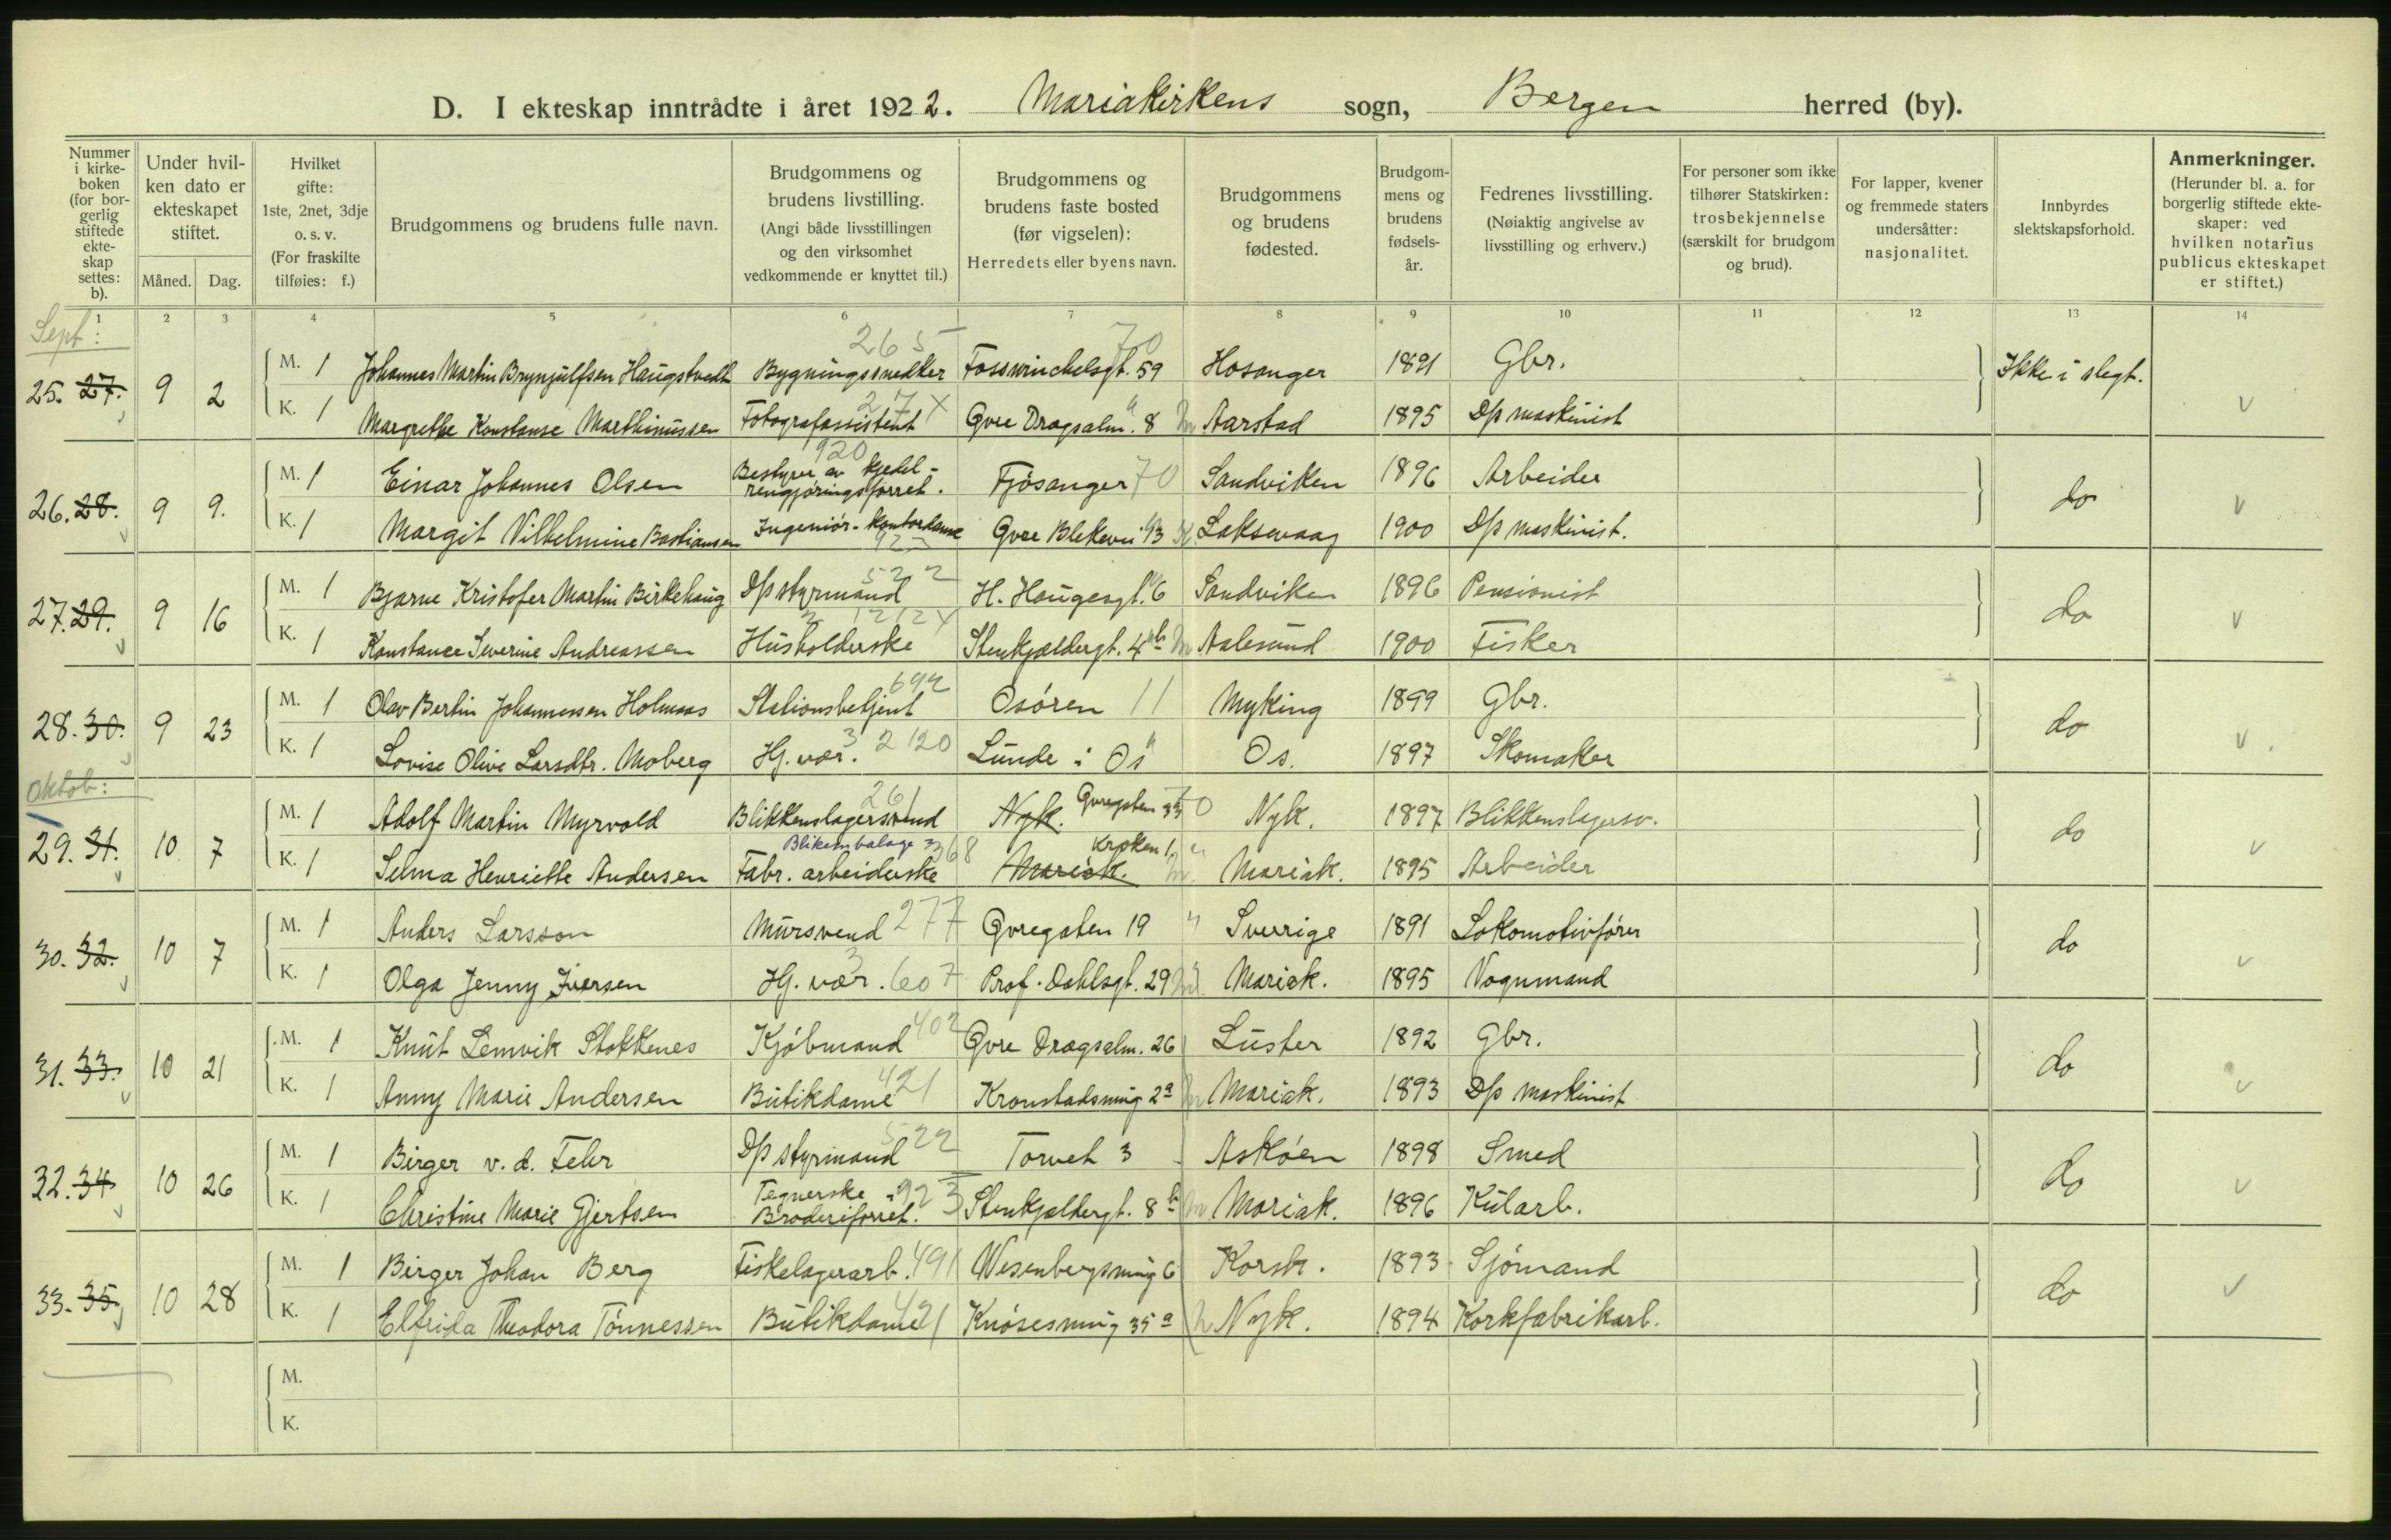 D. I ekteskap inntrådte i året 1922. Mariakirkens sogn, Bergen herred (by).
Nummer i kirke- boken (for bor- gerlig stiftede ekte- skap settes: b).
Under hvil- ken dato er ekteskapet stiftet.
Måned. Dag.
Hvilket gifte: 1ste, 2net, 3dje o. s. v. (For fraskilte tilføies: f.)
Brudgommens og brudens fulle navn.
Brudgommens og brudens livstilling. (Angi både livsstillingen og den virksomhet vedkommende er knyttet til.)
Brudgommens og brudens faste bosted (før vigselen): Herredets eller byens navn.
Brudgommens og brudens fødested.
Brudgom- mens og brudens fødsels- år.
Fedrenes livsstilling. (Nøiaktig angivelse av livsstilling og erhverv.)
For personer som ikke tilhører Statskirken: trosbekjennelse (særskilt for brudgom og brud).
For lapper, kvener og fremmede staters undersåtter: nasjonalitet.
Innbyrdes slektskapsforhold.
Anmerkninger. (Herunder bl. a. for borgerlig stiftede ekte- skaper: ved hvilken notarius publicus ekteskapet er stiftet.)
1 2 3 4 5 6 7 8 9 10 11 12 13 14
Sept:
265 70
M. 1 Johannes Martin Brynjulfsen Haugstvedt Bygningssnedker Fosswinchelsgt. 59 Hosanger 1891 Gbr.
25. 27. 9 2 Ikke i slegt.
K. 1 Margrethe Konstanse Marthinussen Fotografassistent Øvre Dragsalm. 8 Aarstad 1895 D/s maskinist
920
M. 1 Einar Johannes Olsen Bestyrer av kjedel- rengjøringsforret. Fjøsanger 70 Sandviken 1896 Arbeider
26. 28. 9 9. do
K. 1 Margit Vilhelmine Bastiansen Ingeniør-kontordame 923 Øvre Blekevei 13 Laksevaag 1900 D/s maskinist.
522
M. 1 Bjarne Kristofer Martin Birkehaug D/s styrmand H. Haugesgt. 6 Sandviken 1896 Pensionist
27. 29. 9 16 do
K. 1 Konstance Severine Andreassen Husholderske Stenkjældergt. 4 b Aalesund 1900 Fisker
692
M. 1 Olav Bertin Johannessen Holmaas Stationsbetjent Osøren 11 Myking 1899 Gbr.
28. 30. 9 23 do
K. 1 Lovise Olive Larsdtr. Moberg Hj. vær. 3 2120 Lunde i Os Os. 1897 Skomaker
Oktob:
261
M. 1 Adolf Martin Myrvold Blikkenslagersvend Nyk. Øvregaten 33 Nyk. 1897 Blikkenslagersv.
29. 31. 10 7 do
Blikembalage 368 Kroken 1
K. 1 Selma Henriette Andersen Fabr. arbeiderske Mariak. Mariak. 1895 Arbeider
M. 1 Anders Larsson Mursvend 277 Øvregaten 19 Sverige 1891 Lokomotivfører
30. 32. 10 7 do
K. 1 Olga Jenny Iversen Hj. vær. 3 607 Prof. Dahlsgt. 29 Mariak. 1895 Vognmand
402
M. 1 Knut Lemvik Stokkenes Kjøbmand Øvre Dragsalm. 26 Luster 1892 Gbr.
31. 33. 10 21 do
K. 1 Anny Marie Andersen Butikdame 421 Kronstadsmug 2a Mariak. 1893 D/s maskinist
522
M. 1 Birger v. d. Fehr D/s styrmand Torvet 3 Askøen 1898 Smed
32. 34 10 26 do
K. 1 Christine Marie Gjertsen Tegnerske i Broderiforret. 923 Stenkjældergt. 8 b Mariak. 1896 Kularb.
M. 1 Birger Johan Berg Fiskelagerarb. 491 Wesenbergsmug 6 Korsk. 1893 Sjømand
33. 35. 10 28 do
K. 1 Elfrida Theodora Tønnessen Butikdame 421 Knøsesmug 35 a Nyk. 1894 Korkfabrikarb.
M.
K.